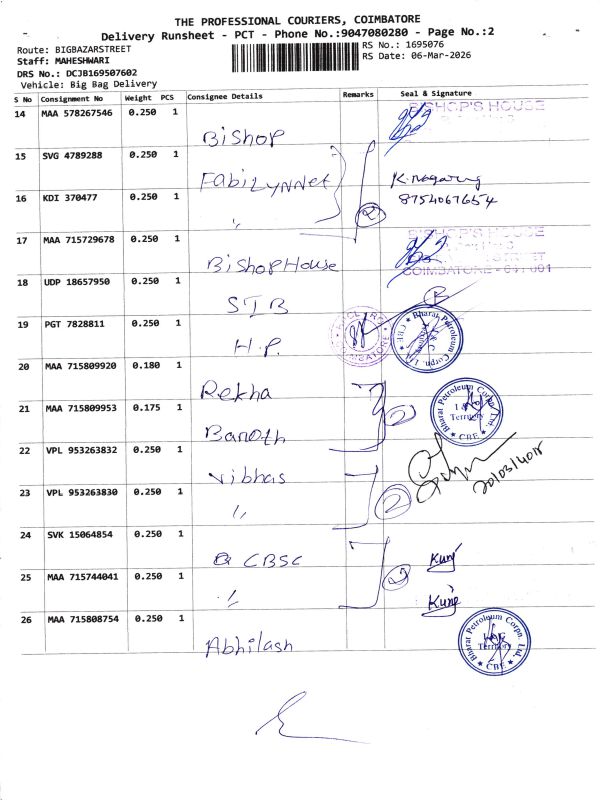 THE PROFESSIONAL COURIERS, COIMBATORE
Delivery Runsheet - PCT - Phone No.:9047080280 - Page No.:2
Route: BIGBAZARSTREET
RS No.: 1695076
Staff: MAHESHWARI
RS Date: 06-Mar-2026
DRS No.: DCJB169507602
Vehicle: Big Bag Delivery
S No Consignment No Weight PCS Consignee Details Remarks Seal & Signature
14 MAA 578267546 0.250 1
BISHOP'S HOUSE
Bishop
15 SVG 4789288 0.250 1
FabiLynnet
K. nagaraj
16 KDI 370477 0.250 1
8754067654
"
2
17 MAA 715729678 0.250 1
BISHOP'S HOUSE
BishopHouse
COIMBATORE - 641 001
18 UDP 18657950 0.250 1
SIB
19 PGT 7828811 0.250 1
H.P.
Bharat Petroleum Corpn. Ltd.
CBE
20 MAA 715809920 0.180 1
Rekha
21 MAA 715809953 0.175 1
Banoth
2
Bharat Petroleum Corpn. Ltd.
Territory
CBE
22 VPL 953263832 0.250 1
Vibhas
23 VPL 953263830 0.250 1
"
2
24 SVK 15064854 0.250 1
CBSC
25 MAA 715744041 0.250 1
"
2
26 MAA 715808754 0.250 1
Abhilash
Bharat Petroleum Corpn. Ltd.
Territory
CBE